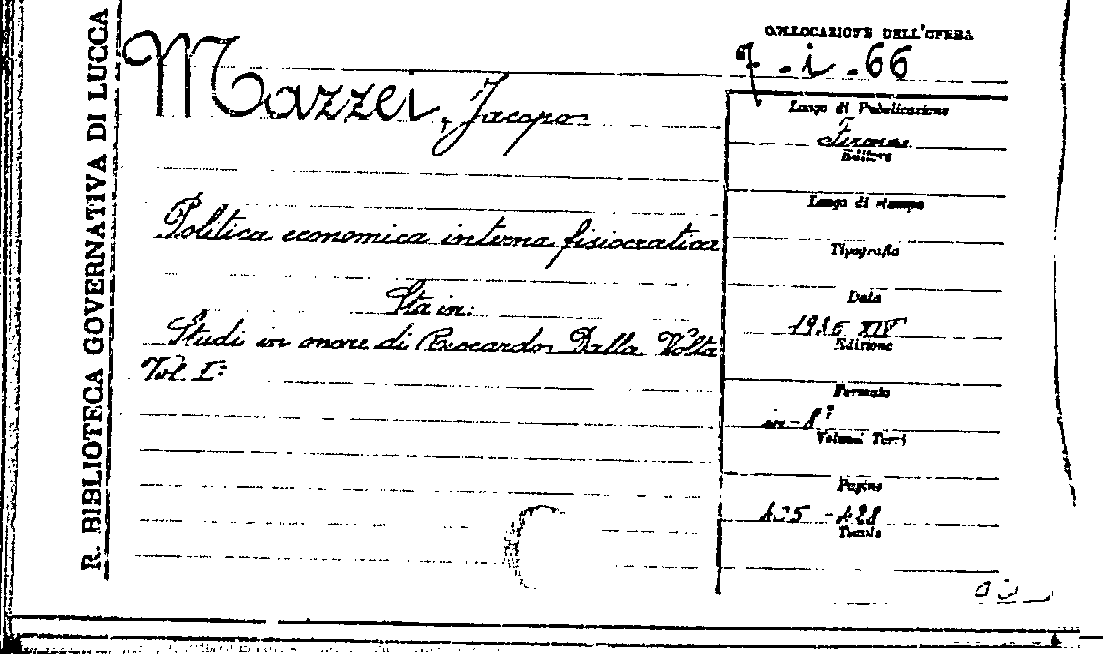 R. BIBLIOTECA GOVERNATIVA DI LUCCA
COLLOCAZIONE DELL'OPERA
7 . i . 66
Mazzei, Jacopo
Politica economica interna fisiocratica
Sta in:
Studi in onore di Riccardo Dalla Volta
Vol. I°
Luogo di Pubblicazione
Firenze
Editore
Luogo di stampa
Tipografia
Data
1936 XIV
Edizione
Formato
in-8°
Volumi Tomi
Pagine
Tavole